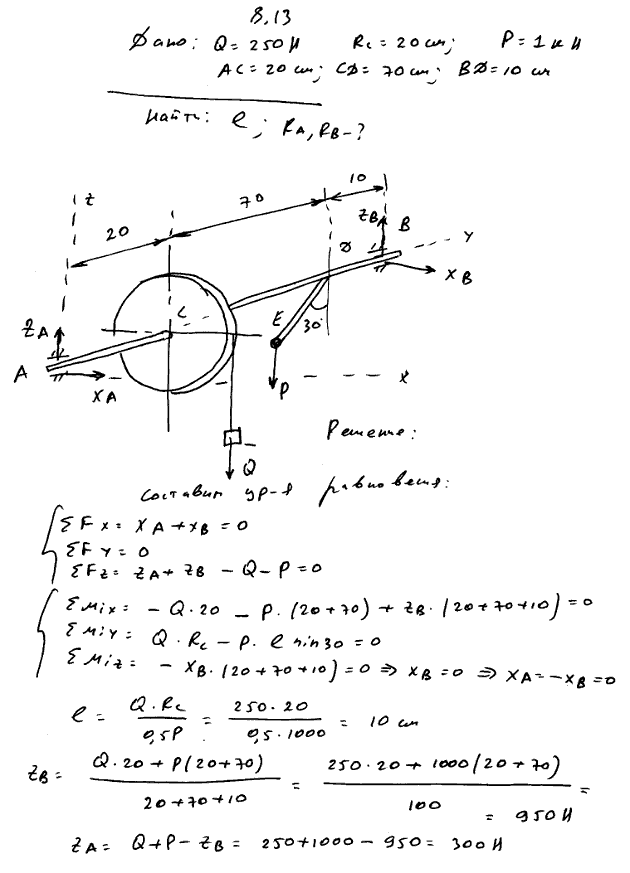 8.13
Дано: Q = 250 Н Rc = 20 см; P = 1 кН
AC = 20 см; CD = 70 см; BD = 10 см
Найти: l; RA, RB - ?
z
20
70
10
zB
B
y
D
xB
C
E
30
zA
A
xA
P
x
Q
Решение:
составим ур-я равновесия:
ΣFx = XA + XB = 0
ΣFY = 0
ΣFz = ZA + ZB - Q - P = 0
ΣMix = - Q · 20 - P · (20+70) + ZB · (20+70+10) = 0
ΣMiY = Q · Rc - P · l sin 30 = 0
ΣMiz = - XB · (20+70+10) = 0 ⇒ XB = 0 ⇒ XA = -XB = 0
l = Q · Rc / 0,5P = 250 · 20 / 0,5 · 1000 = 10 см
ZB = Q · 20 + P(20+70) / 20+70+10 = 250 · 20 + 1000(20+70) / 100 =
= 950 Н
ZA = Q + P - ZB = 250 + 1000 - 950 = 300 Н